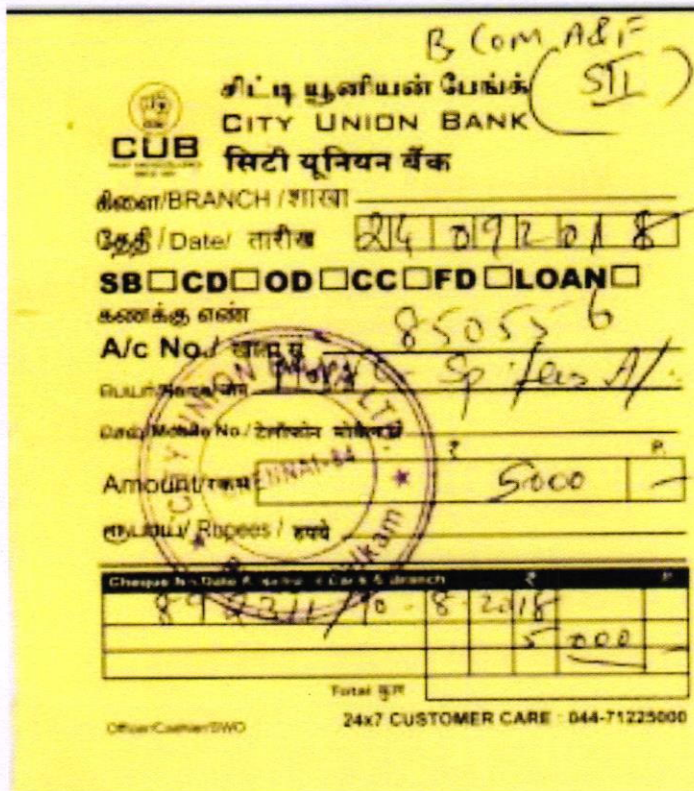 B. Com A&F
(SII)
சிட்டி யூனியன் பேங்க்
CITY UNION BANK
CUB
सिटी यूनियन बैंक
கிளை/BRANCH / शाखा
தேதி / Date/ तारीख 24 09 2018
SB CD OD CC FD LOAN
கணக்கு எண்
850556
A/c No./ खाता सं
Sp. fees A/c
Mobile No./
₹ P.
Amount/रकम 5000 —
ரூபாய்/ Rupees / रुपये
CITY UNION BANK LTD.
CHENNAI-84
Cheque No. Date & Bank & Branch ₹ P.
10-8-2018
5 000 —
Total कुल
Officer/Cashier/SWO 24x7 CUSTOMER CARE : 044-71225000